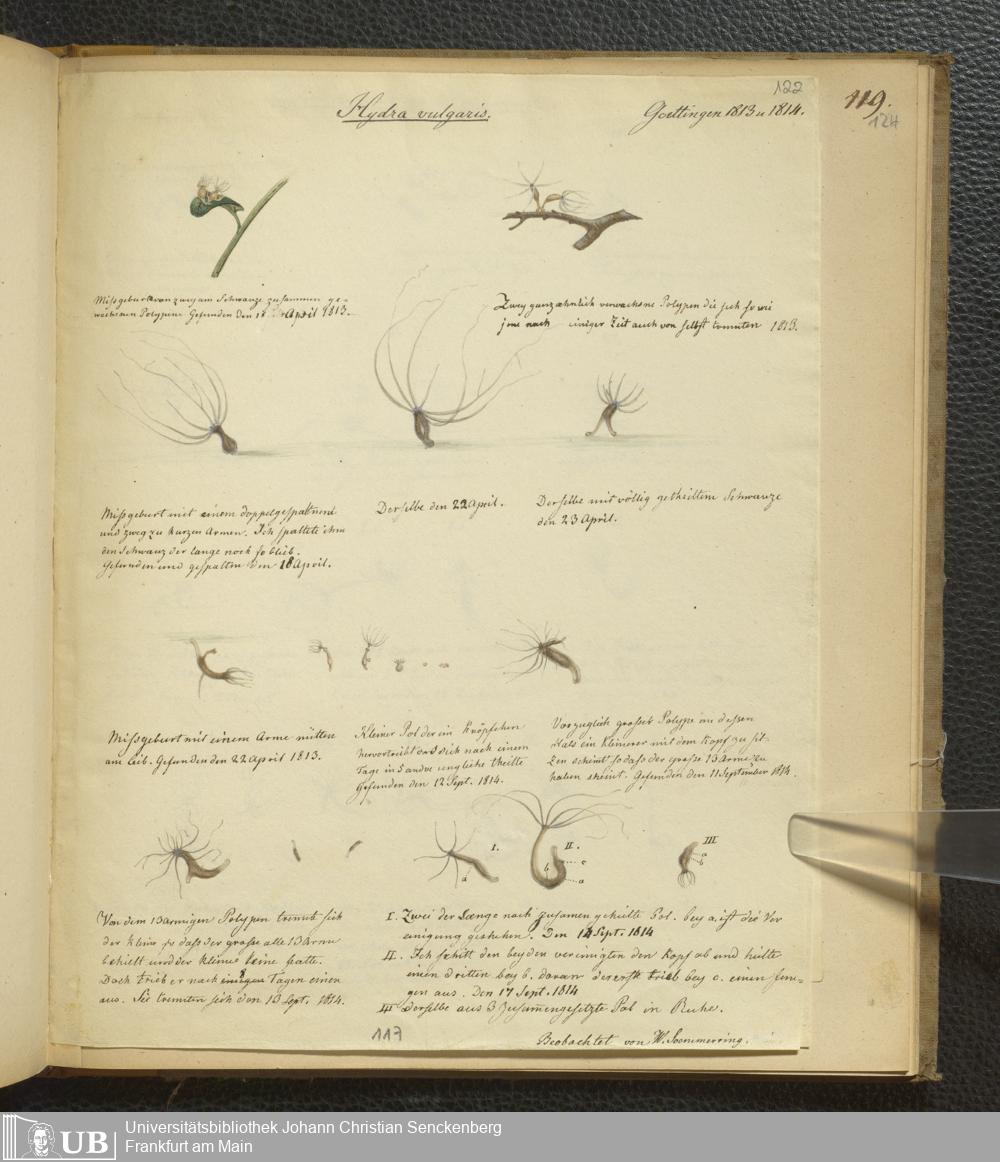 122
119.
124
Hydra vulgaris.
Goettingen 1813 u 1814.
Missgeburt von zwey am Schwanze zusammen ge-
wachsenen Polypen. Gefunden den April 1813.
Zwey ganz æhnlich verwachsne Polypen die sich so wie
jene nach einiger Zeit auch von selbst trennten 1813.
Missgeburt mit einem doppelgespaltnen
und zwey zu kurzen Armen. Ich spaltete ihm
den Schwanz der lange noch so blieb.
Gefunden und gespalten den 18 April.
Derselbe den 22 April.
Derselbe mit völlig getheiltem Schwanze
den 23 April.
Missgeburt mit einem Arme mitten
am Leib. Gefunden den 22 April 1813.
Kleiner Pol der ein Knöpfchen
hervortreibt das sich nach einem
Tage in 5 andre ungliche theilte
Gefunden den 12 Sept. 1814.
Vorzüglich grosser Polype an dessen
Hals ein kleinerer mit dem Kopf zu sit-
zen scheint so dass der grosse 13 Arme zu
haben scheint. Gefunden den 11 September 1814.
I.
a
II.
b
c
a
III
a
b
Von dem 13 armigen Polypen trennte sich
der kleine so dass der grosse alle 13 Arme
behielt und der kleine keine hatte.
Doch trieb er nach einigen Tagen einen
aus. Sie trennten sich den 13 Sept. 1814.
I. Zwei der Länge nach zusamen geheilte Pol. bey a. ist die Ver
einigung geschehen. Den 14 Sept. 1814
II. Ich schitt den beyden vereinigten den Kopf ab und heilte
einen dritten bey b. daran der erste trieb bey c. einen Jun-
gen aus. Den 17 Sept. 1814
III Derselbe aus 3 Zusam̅engesetzte Pol in Ruhe.
117
Beobachtet von W. Soemmerring.
UB
Universitätsbibliothek Johann Christian Senckenberg
Frankfurt am Main